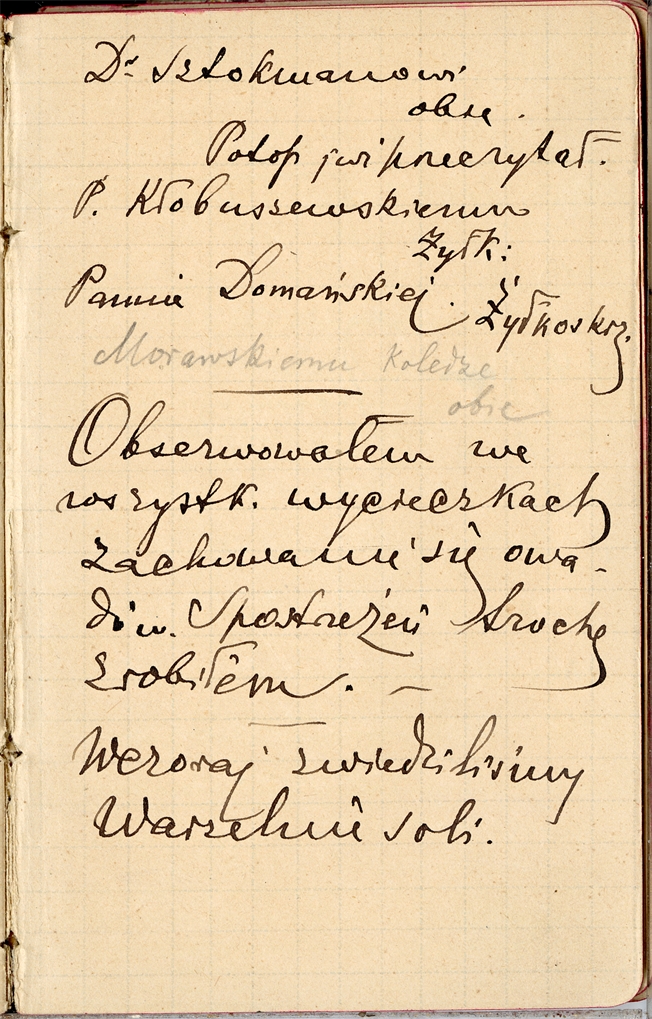 Dr Sztokmanowi
obie.
Potop i wi przeczytał.
P. Kłobuszewskiemu
Żyłk:
Pannie Domańskiej. i
Żyłkoskrz.
Morawskiemu Koledze
obie
Obserwowałem we
wszystk. wycieczkach
zachowanie się owa-
dów. Spostrzeżeń trochę
zrobiłem. –
Wczoraj zwiedziliśmy
Warzelnię soli.